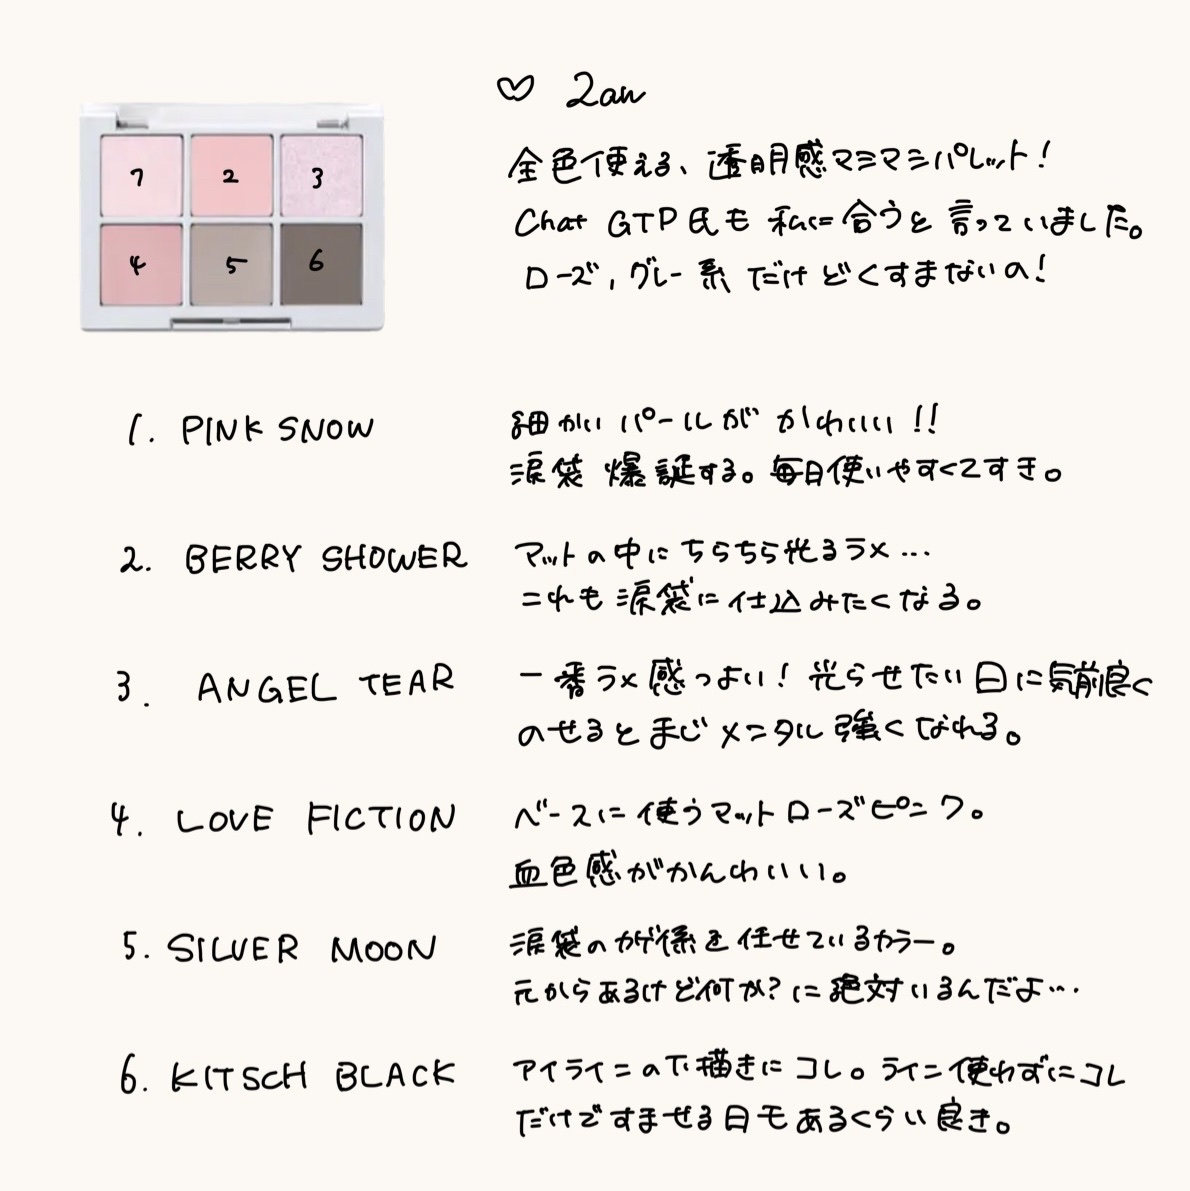 ♡ 2an
全色使える、透明感マシマシパレット！
Chat GTP氏も 私に合うと言っていました。
ローズ, グレー系 だけど くすまないの！
1 2 3
4 5 6
1. PINK SNOW
細かいパールが かわいい!!
涙袋 爆誕する。毎日使いやすくてすき。
2. BERRY SHOWER
マットの中に ちらちら光るラメ…
これも 涙袋に 仕込みたくなる。
3. ANGEL TEAR
一番ラメ感つよい！光らせたい日に気前良く
のせると まじメンタル強くなれる。
4. LOVE FICTION
ベースに使うマットローズピンク。
血色感がかんわいい。
5. SILVER MOON
涙袋のカゲ係を任せているカラー。
元からあるけど何か？に絶対いるんだよ…
6. KITSCH BLACK
アイラインの下描きに コレ。ライン使わずにコレ
だけですませる日もあるくらい良き。